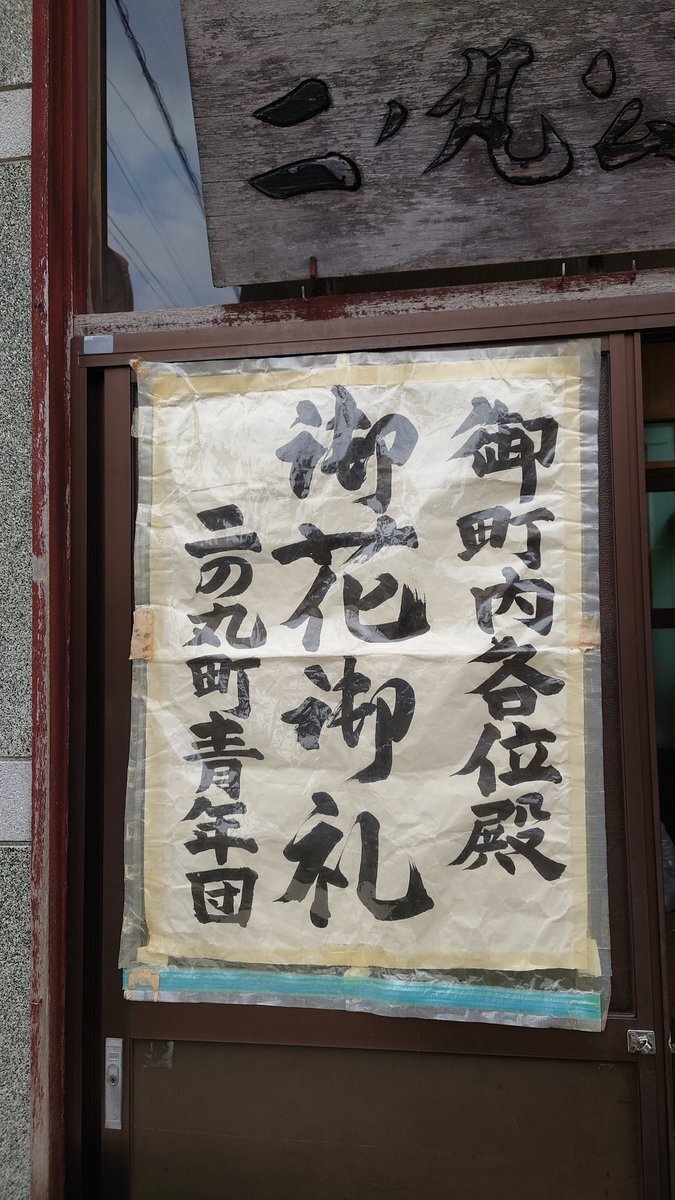 二ノ丸公
御町内各位殿
御花御礼
二の丸町青年団